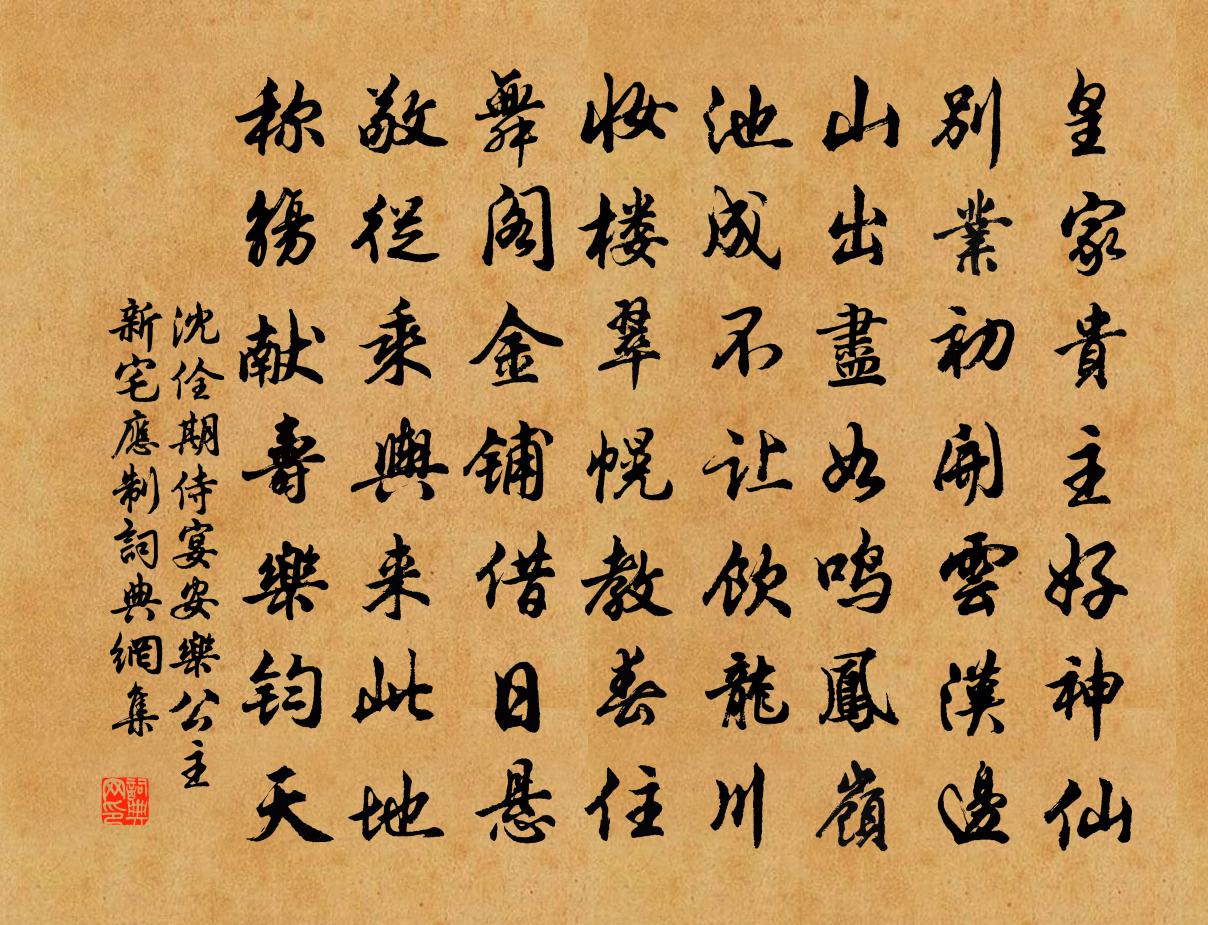 皇家貴主好神仙
別業初開雲漢邊
山出盡如鳴鳳嶺
池成不让飲龍川
妝楼翠幌教春住
舞阁金铺借日悬
敬從乘輿来此地
称觴献壽樂钧天
沈佺期侍宴安樂公主
新宅應制詞典網集
詞典
网印